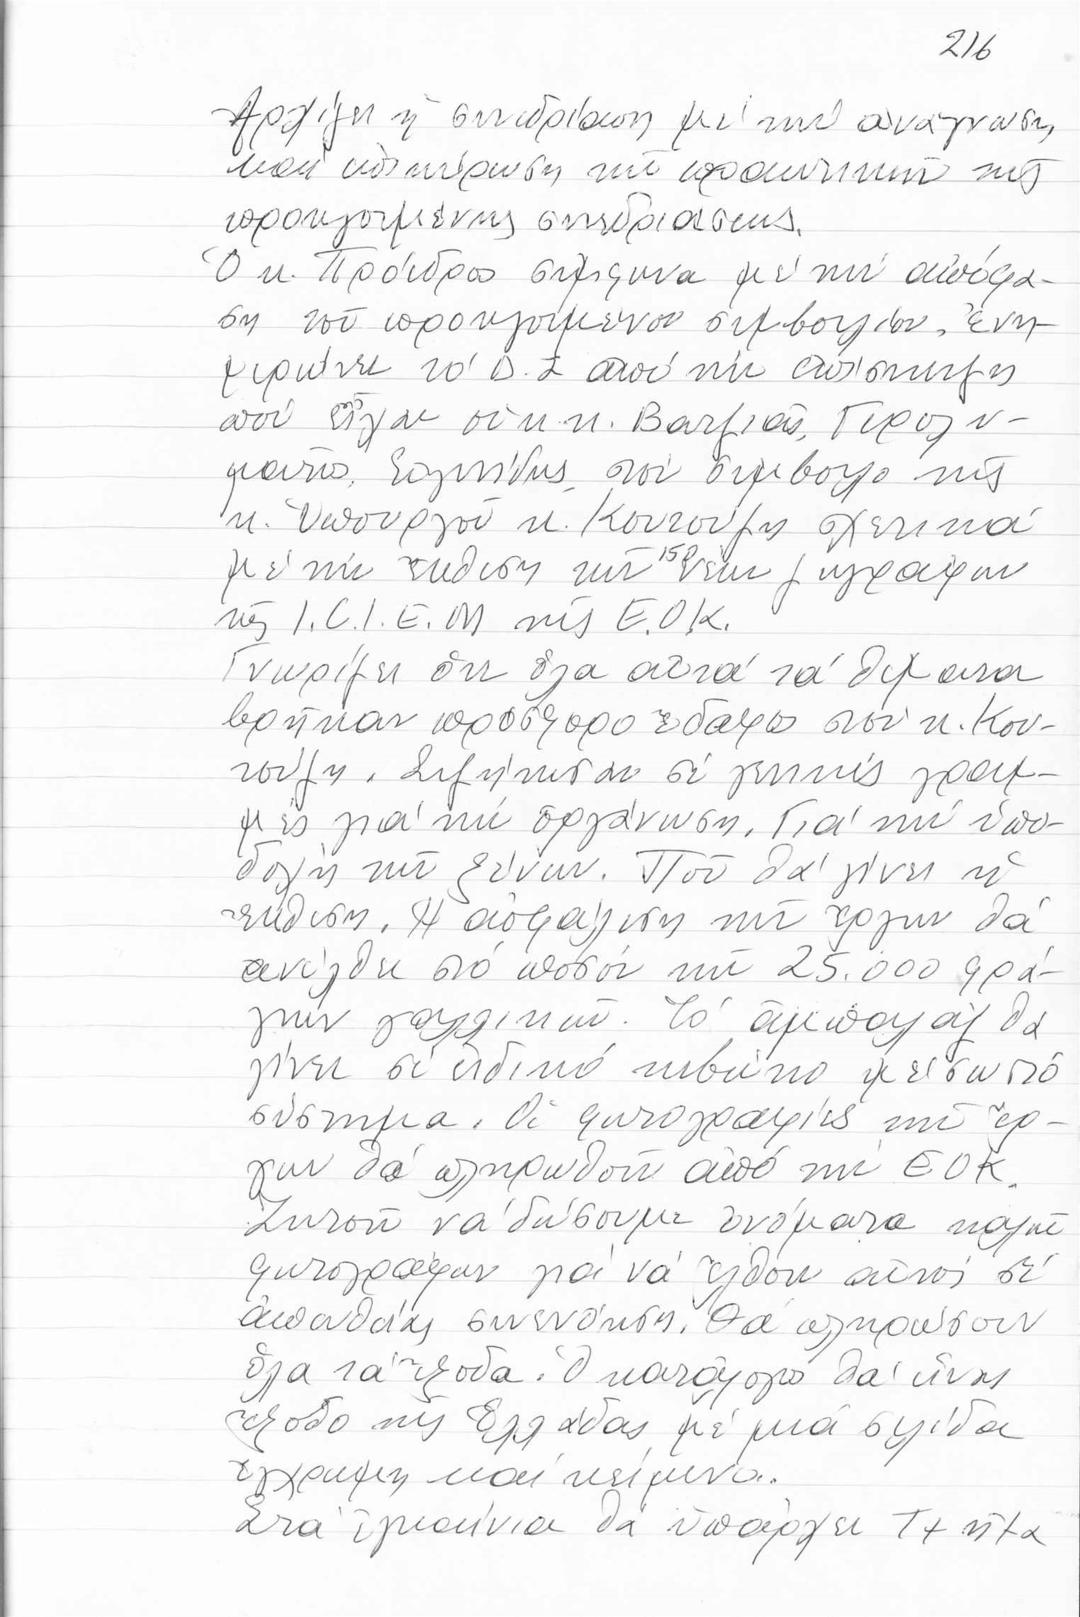 216
Ἀρχίζει ἡ συνεδρίαση μέ τήν ἀνάγνωση
καί ἐπικύρωση τῶν πρακτικῶν τῆς
προηγουμένης συνεδριάσεως.
Ὁ κ. Πρόεδρος σύμφωνα μέ τήν ἀπόφα-
ση τοῦ προηγούμενου συμβουλίου, ἐνη-
μερώνει τό Δ.Σ ἀπό τήν ἐπίσκεψη
πού εἶχαν οἱ κ.κ. Βατζιᾶς, Γερολυ-
μᾶτος, στό σύμβουλο τῆς
κ. Ὑπουργοῦ κ. Κουτούζη σχετικά
μέ τήν ἔκθεση τῶν 150 νέων ζωγράφων
τῆς I.C.I.E.M τῆς Ε.Ο.Κ.
Γνωρίζει ὅτι ὅλα αὐτά τά θέματα
βρῆκαν πρόσφορο ἔδαφος στόν κ. Κου-
τούζη. Συζήτησαν σέ γενικές γραμ-
μές γιά τήν ὀργάνωση. Γιά τήν ὑπο-
δοχή τῶν ξένων. Ποῦ θά γίνει ἡ
ἔκθεση. Ἡ ἀσφάλιση τῶν ἔργων θά
ἀνέλθει στό ποσόν τῶν 25.000 φρά-
γκων γαλλικῶν. Τό ἀμπαλάζ θά
γίνει σέ εἰδικό κιβώτιο μέ
σύστημα. Οἱ φωτογραφίες τῶν ἔρ-
γων θά πληρωθοῦν ἀπό τήν ΕΟΚ.
Ζητοῦν νά δώσουμε ὀνόματα καλῶν
φωτογράφων γιά νά ἔλθουν αὐτοί σέ
ἀπευθείας συνεννόηση. Θά πληρώσουν
ὅλα τά ἔξοδα. Ὁ κατάλογος θά εἶναι
ἔξοδο τῆς Ἑλλάδας μέ μιά σελίδα
ἔγχρωμη καί κείμενο.
Στά ἐγκαίνια θά ὑπάρχει